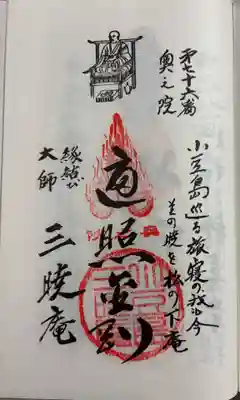 第七十六番
奥之院
小豆島巡る旅寝の我も今
その暁を松の下庵
遍照金剛
縁結び
大師
三暁庵